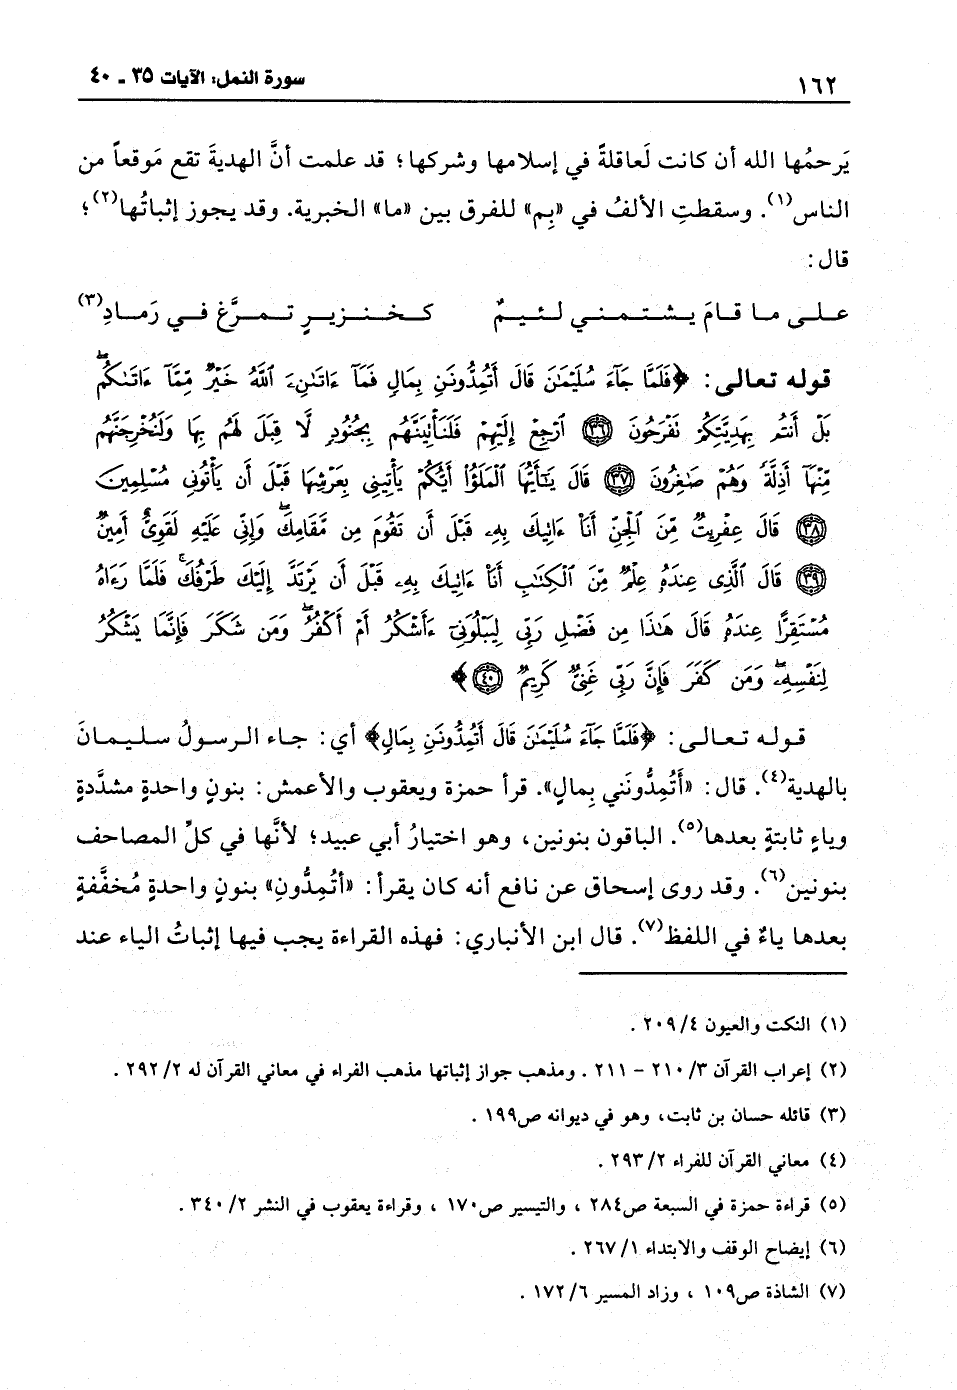 ١٦٢
سورة النمل: الآيات ٣٥ ـ ٤٠
يَرحمُها الله أن كانت لَعاقلةً في إسلامها وشركها؛ قد علمت أنَّ الهديةَ تقع مَوقعاً من
الناس(١). وسقطتِ الألفُ في «بِم» للفرق بين «ما» الخبرية. وقد يجوز إثباتُها(٢)؛
قال:
علـى مـا قـامَ يـشـتـمـنـي لـئـيـمٌ كـخـنـزيـرٍ تـمـرَّغ فـي رَمـادِ(٣)
قوله تعالى: ﴿فَلَمَّا جَآءَ سُلَيْمَٰنَ قَالَ أَتُمِدُّونَنِ بِمَالٍ فَمَآ ءَاتَىٰنِۦَ ٱللَّهُ خَيْرٌ مِّمَّآ ءَاتَىٰكُمۖ
بَلْ أَنتُم بِهَدِيَّتِكُمْ تَفْرَحُونَ ٣٦ ٱرْجِعْ إِلَيْهِمْ فَلَنَأْتِيَنَّهُم بِجُنُودٍ لَّا قِبَلَ لَهُم بِهَا وَلَنُخْرِجَنَّهُم
مِّنْهَآ أَذِلَّةً وَهُمْ صَٰغِرُونَ ٣٧ قَالَ يَٰٓأَيُّهَا ٱلْمَلَؤُا۟ أَيُّكُمْ يَأْتِينِي بِعَرْشِهَا قَبْلَ أَن يَأْتُونِي مُسْلِمِينَ
٣٨ قَالَ عِفْرِيتٌ مِّنَ ٱلْجِنِّ أَنَا۠ ءَاتِيكَ بِهِۦ قَبْلَ أَن تَقُومَ مِن مَّقَامِكَۖ وَإِنِّي عَلَيْهِ لَقَوِيٌّ أَمِينٌ
٣٩ قَالَ ٱلَّذِي عِندَهُۥ عِلْمٌ مِّنَ ٱلْكِتَٰبِ أَنَا۠ ءَاتِيكَ بِهِۦ قَبْلَ أَن يَرْتَدَّ إِلَيْكَ طَرْفُكَۚ فَلَمَّا رَءَاهُ
مُسْتَقِرًّا عِندَهُۥ قَالَ هَٰذَا مِن فَضْلِ رَبِّي لِيَبْلُوَنِيٓ ءَأَشْكُرُ أَمْ أَكْفُرُۖ وَمَن شَكَرَ فَإِنَّمَا يَشْكُرُ
لِنَفْسِهِۦۖ وَمَن كَفَرَ فَإِنَّ رَبِّي غَنِيٌّ كَرِيمٌ ٤٠﴾
قولـه تـعـالـى: ﴿فَلَمَّا جَآءَ سُلَيْمَٰنَ قَالَ أَتُمِدُّونَنِ بِمَالٍ﴾ أي: جـاء الـرسـولُ سـلـيـمـانَ
بالهدية(٤). قال: «أَتُمِدُّونَني بِمالٍ». قرأ حمزة ويعقوب والأعمش: بنونٍ واحدةٍ مشدَّدةٍ
وياءٍ ثابتةٍ بعدها(٥). الباقون بنونين، وهو اختيارُ أبي عبيد؛ لأنَّها في كلِّ المصاحف
بنونين(٦). وقد روى إسحاق عن نافع أنه كان يقرأ: «أتُمِدُّونِ» بنونٍ واحدةٍ مُخفَّفةٍ
بعدها ياءٌ في اللفظ(٧). قال ابن الأنباري: فهذه القراءة يجب فيها إثباتُ الياء عند
(١) النكت والعيون ٤/ ٢٠٩ .
(٢) إعراب القرآن ٣/ ٢١٠ - ٢١١ . ومذهب جواز إثباتها مذهب الفراء في معاني القرآن له ٢/ ٢٩٢ .
(٣) قائله حسان بن ثابت، وهو في ديوانه ص١٩٩ .
(٤) معاني القرآن للفراء ٢/ ٢٩٣ .
(٥) قراءة حمزة في السبعة ص٢٨٤ ، والتيسير ص١٧٠ ، وقراءة يعقوب في النشر ٢/ ٣٤٠ .
(٦) إيضاح الوقف والابتداء ١/ ٢٦٧ .
(٧) الشاذة ص١٠٩ ، وزاد المسير ٦/ ١٧٢ .